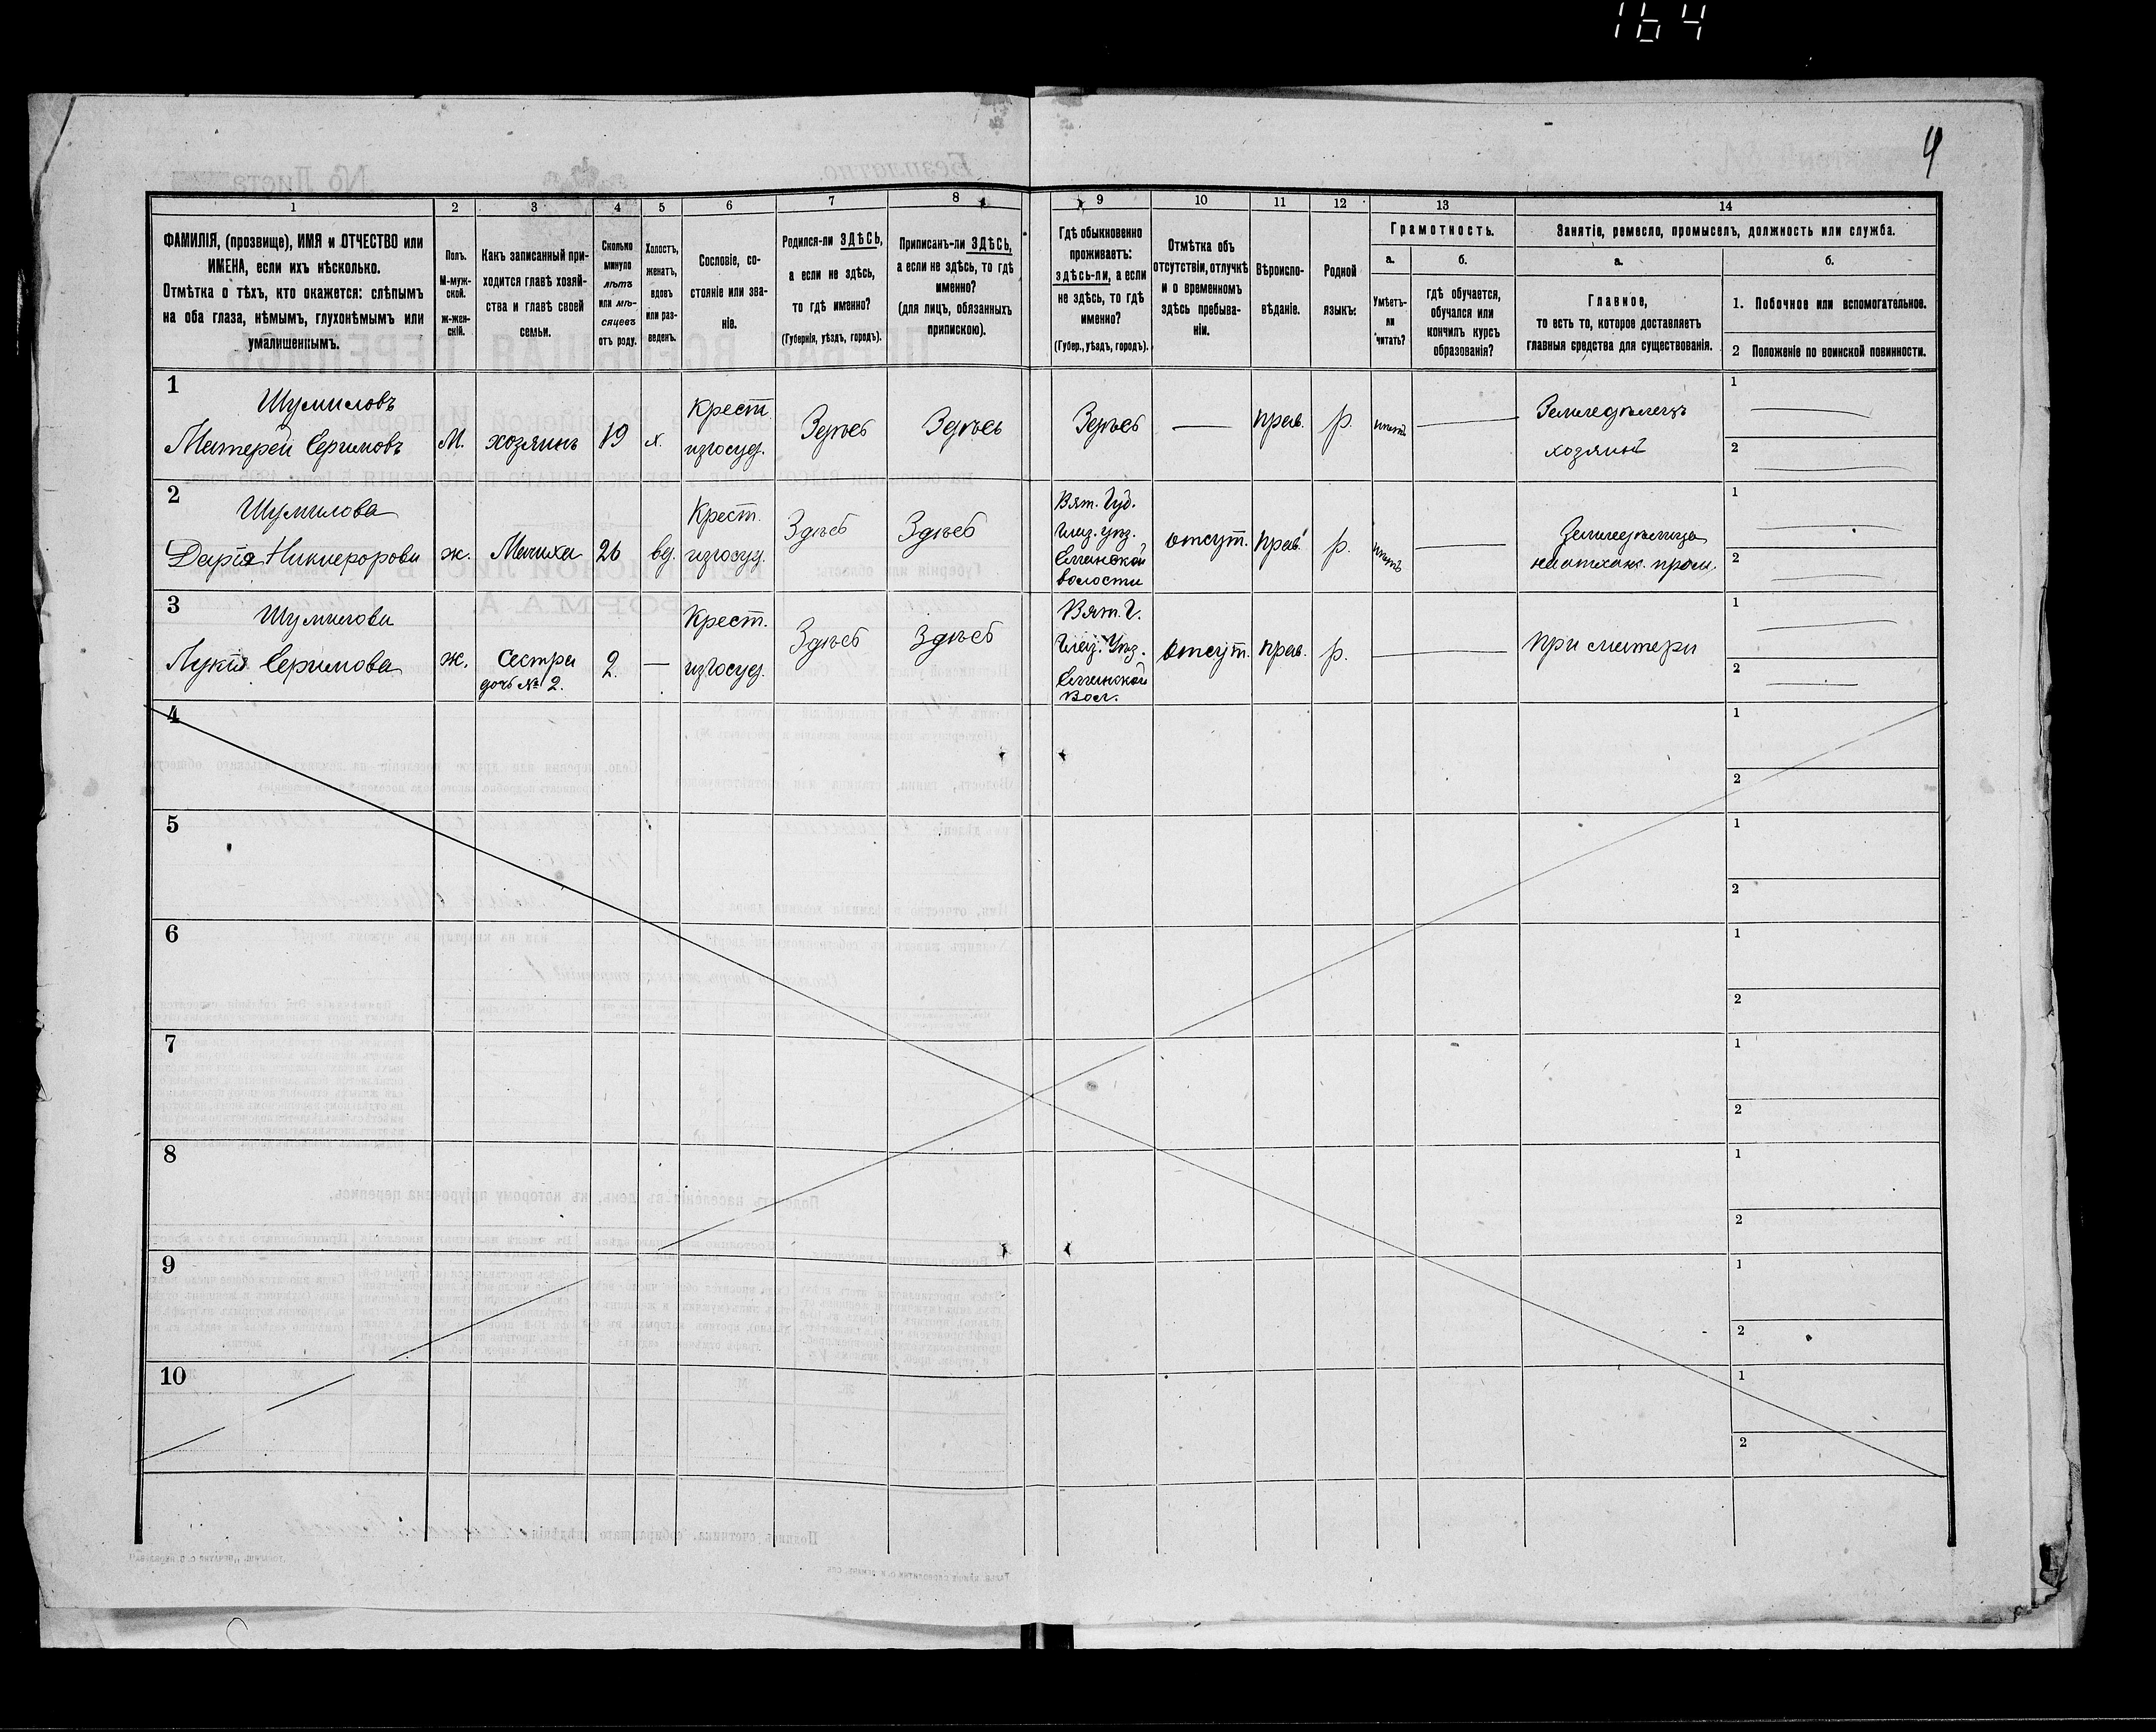 164
4
1
2
3
4
5
6
7
8
9
10
11
12
13
14
ФАМИЛІЯ, (прозвище), ИМЯ и ОТЧЕСТВО или
ИМЕНА, если ихъ нѣсколько.
Отмѣтка о тѣхъ, кто окажется: слѣпымъ
на оба глаза, нѣмымъ, глухонѣмымъ или
умалишеннымъ.
Полъ.
М-муж-
ской.
ж-жен-
скій.
Какъ записанный при-
ходится главѣ хозяй-
ства и главѣ своей
семьи.
Сколько
минуло
лѣтъ
или мѣ-
сяцевъ
отъ роду.
Холостъ,
женатъ,
вдовъ
или раз-
веденъ.
Сословіе, со-
стояніе или зва-
ніе.
Родился-ли ЗДѢСЬ,
а если не здѣсь,
то гдѣ именно?
(Губернія, уѣздъ, городъ).
Приписанъ-ли ЗДѢСЬ,
а если не здѣсь, то гдѣ
именно?
(для лицъ, обязанныхъ
припискою).
Гдѣ обыкновенно
проживаетъ:
здѣсь-ли, а если
не здѣсь, то гдѣ
именно?
(Губер., уѣздъ, городъ).
Отмѣтка объ
отсутствіи, отлучкѣ
и о временномъ
здѣсь пребыва-
ніи.
Вѣроиспо-
вѣданіе.
Родной
языкъ.
Грамотность.
а.
Умѣетъ-
ли
читать?
б.
гдѣ обучается,
обучался или
кончилъ курсъ
образованія?
Занятіе, ремесло, промыселъ, должность или служба.
а.
Главное,
то есть то, которое доставляетъ
главныя средства для существованія.
б.
1. Побочное или вспомогательное.
2 Положеніе по воинской повинности.
1
Шумиловъ
М.
хозяинъ
19
х.
Крест.
изгосуд.
Здѣсь
Здѣсь
Здѣсь
—
прав.
р.
—
Земледѣлецъ
хозяинъ
1 —
2 —
2
Шумилова
Дарія Никифорова
ж.
Мачиха
26
вд.
Крест.
изгосуд.
Здѣсь
Здѣсь
Вят. Губ.
Глаз. уѣз.
волости
отсут.
прав.
р.
—
Земледѣлица
1 —
2 —
3
Шумилова
ж.
Сестра
дочь № 2.
2.
—
Крест.
изгосуд.
Здѣсь
Здѣсь
Вят. Г.
Глаз. Уѣз.
Вол.
отсут.
прав.
р.
—
при матери
1 —
2 —
4
1
2
5
1
2
6
1
2
7
1
2
8
1
2
9
1
2
10
1
2